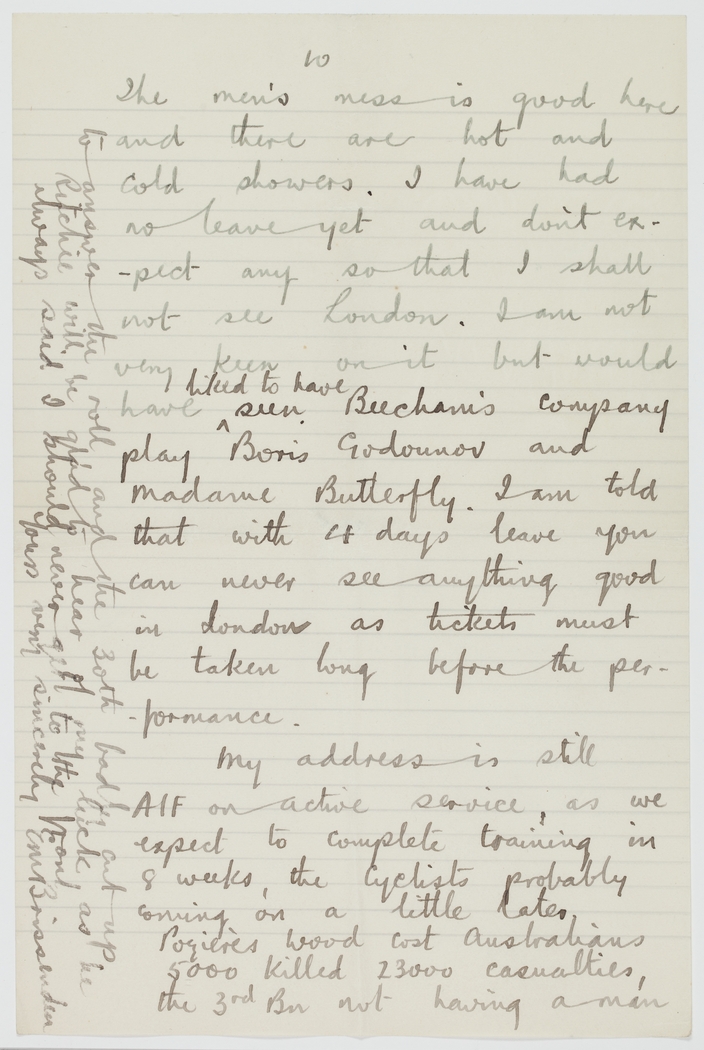 10
The men's mess is good here
and there are hot and
cold showers. I have had
no leave yet and don't ex-
-pect any so that I shall
not see London. I am not
very keen on it but would
liked to have
have ^ seen Beecham's company
play Boris Godounov and
Madame Butterfly. I am told
that with 4 days leave you
can never see anything good
in London as tickets must
be taken long before the per-
-formance.
My address is still
AIF on active service, as we
expect to complete training in
8 weeks, the Cyclists probably
coming on a little later.
Pozières Wood cost Australians
5000 killed 23000 casualties,
the 3rd Bn not having a man
to answer the roll and the 30th badly cut up
Ritchie will be glad to hear of my luck, as he
always said I should never get to the Front
Yours very sincerely EMBrissenden